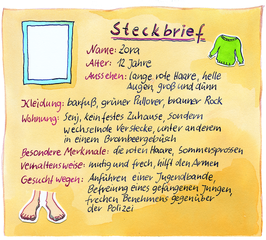 Steckbrief
Name: Zora
Alter: 12 Jahre
Aussehen: lange rote Haare, helle
Augen, groß und dünn
Kleidung: barfuß, grüner Pullover, brauner Rock
Wohnung: Senj, kein festes Zuhause, sondern
wechselnde Verstecke, unter anderem
in einem Brombeergebüsch
Besondere Merkmale: die roten Haare, Sommersprossen
Verhaltensweise: mutig und frech, hilft den Armen
Gesucht wegen: Anführen einer Jugendbande,
Befreiung eines gefangenen Jungen,
frechen Benehmens gegenüber
der Polizei